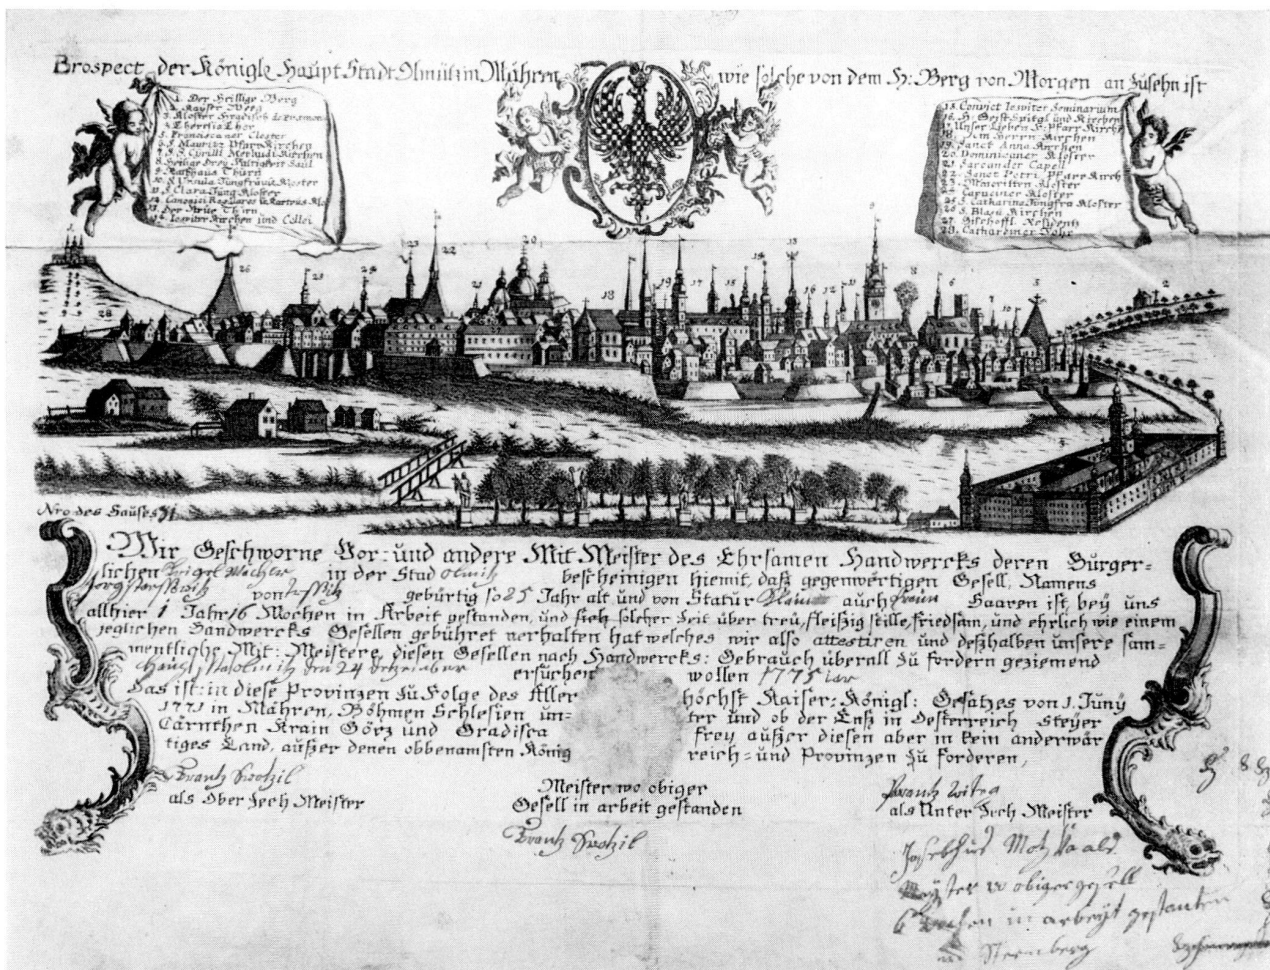 Prospect der Königle Haupt Stadt Olmütz in Mähren wie solche von dem H: Berg von Morgen an Zusehn ist
1. Der Heillige Berg
2. Kayser Weeg
3. Kloster Hradisch
4. Theresia Thor
5. Franciscaner Closter
6. S Mauritz Pfarr Kirchen
7. S Cyrilli Methudi Kirchen
8.
9. Rathhaus Thurn
10. S Ursula Jungfrauē Kloster
11. S. Clara Jung Kloster
12. Canonici Regulares
13. Der Neüe Thurn
14. Iesviter Kirchen und Collei
15. Convict Iesviter Seminarium
16. H: Geist Spital und Kirchen
17. Unser Lieben F: Pfarr Kirche
18. Kirchen
19. Sanct Anna Kirchen
20. Dominicaner Kloster
21. Sarcander Capell
22. Sanct Petri Pfarr Kirch
23. Minoritten Kloster
24. Capuciner Kloster
25. S Catharina Jungfra Kloster
26. S. Blasii Kirchen
27. Bischoffl. Residentz
28. Catharainer Dohr
Nro des Hauses
Wir Geschworne Vor: und andere Mit Meister des Ehrsamen Handwercks deren Burger-
lichen in der Stad Olmitz bescheinigen hiemit, daß gegenwertigen Gesell, Namens
von gebürtig so 25 Jahr alt und von Statur auch Haaren ist, bey uns
allhier 1 Jahr 16 Wochen in Arbeit gestanden, und sich solcher Zeit über treu, fleißig stille, friedsam, und ehrlich wie einem
jeglichen Handwercks Gesellen gebühret verhalten hat welches wir also attestiren und deßhalben unsere sam-
mentliche Mit: Meistere, diesen Gesellen nach Handwercks: Gebrauch überall zu fordern geziemend
den 24 ersuchen wollen 1775
Das ist: in diese Provinzen zu Folge des Aller höchst Kaiser: Königl: Gesätzes von 1. Juny
1771 in Mähren, Böhmen Schlesien un- ter und ob der Enß in Oesterreich Steyer
Cärnthen Krain Görz und Gradisca frey außer diesen aber in kein anderwär
tiges Land, außer denen obbenamsten König reich= und Provinzen zu fordern,
Frantz
als Ober Zech Meister
Meister wo obiger
Gesell in arbeit gestanden
Frantz
als Unter Zech Meister
Frantz
wo obiger gesell
6 in arbeyt gestanten
Sternberg